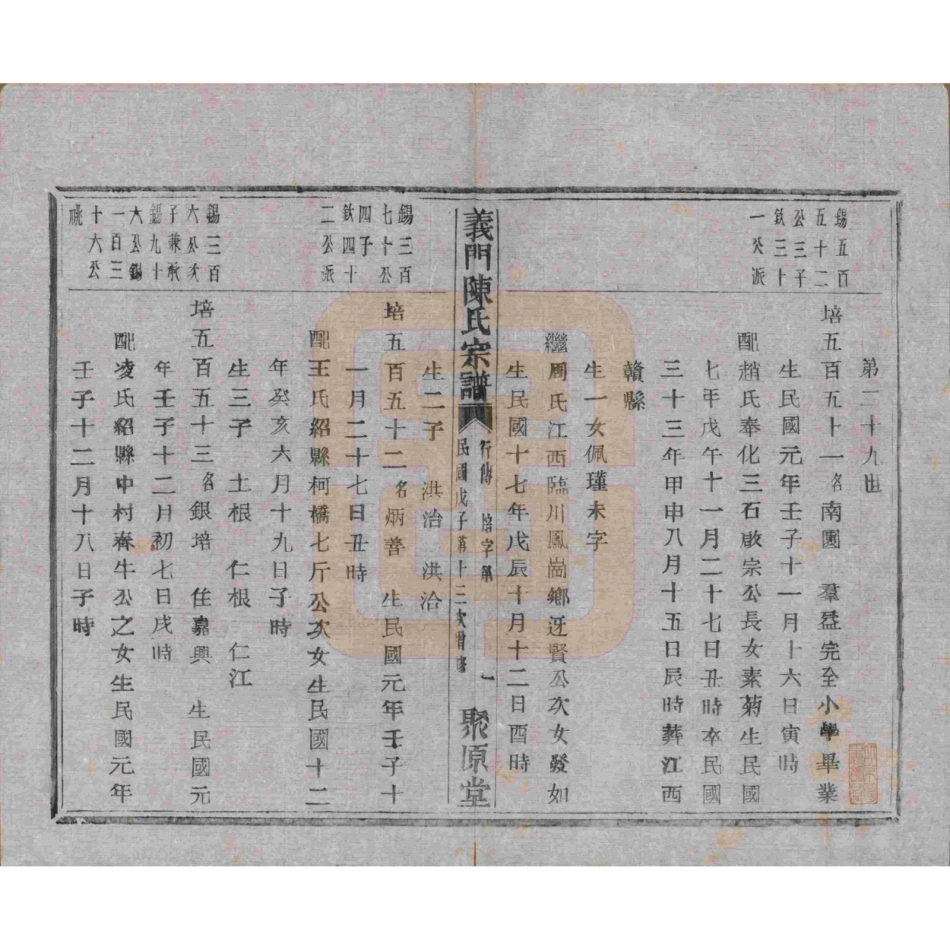 第三十九世
錫五百
五十二
公三子
欽三十
一公派
培五百五十一名南園　羣益完全小學畢業
生民國元年壬子十一月十六日寅時
配趙氏奉化三石啟宗公長女素菊生民國
七年戊午十一月二十七日丑時卒民國
三十三年甲申八月十五日辰時葬江西
贛縣
生一女佩瑾未字
繼周氏江西臨川鳳崗鄉迂賢公次女發如
生民國十七年戊辰十月十二日酉時
義門陳氏宗譜
行傳　培字第　一
民國戊子第十三次增修
聚原堂
生二子　洪治　洪治
錫三百
七十公
四子
欽四十
二公派
培五百五十二名炳善　生民國元年壬子十
一月二十七日丑時
配王氏紹縣柯橋七斤公次女生民國十二
年癸亥六月十九日子時
生三子　土根　仁根　仁江
錫三百
六公次
子兼承
錫九十
六公錫
一百三
十六公
祧
培五百五十三名銀培　住嘉興　生民國元
年壬子十二月初七日戌時
配凌氏紹縣中村春牛公之女生民國元年
壬子十二月十八日子時